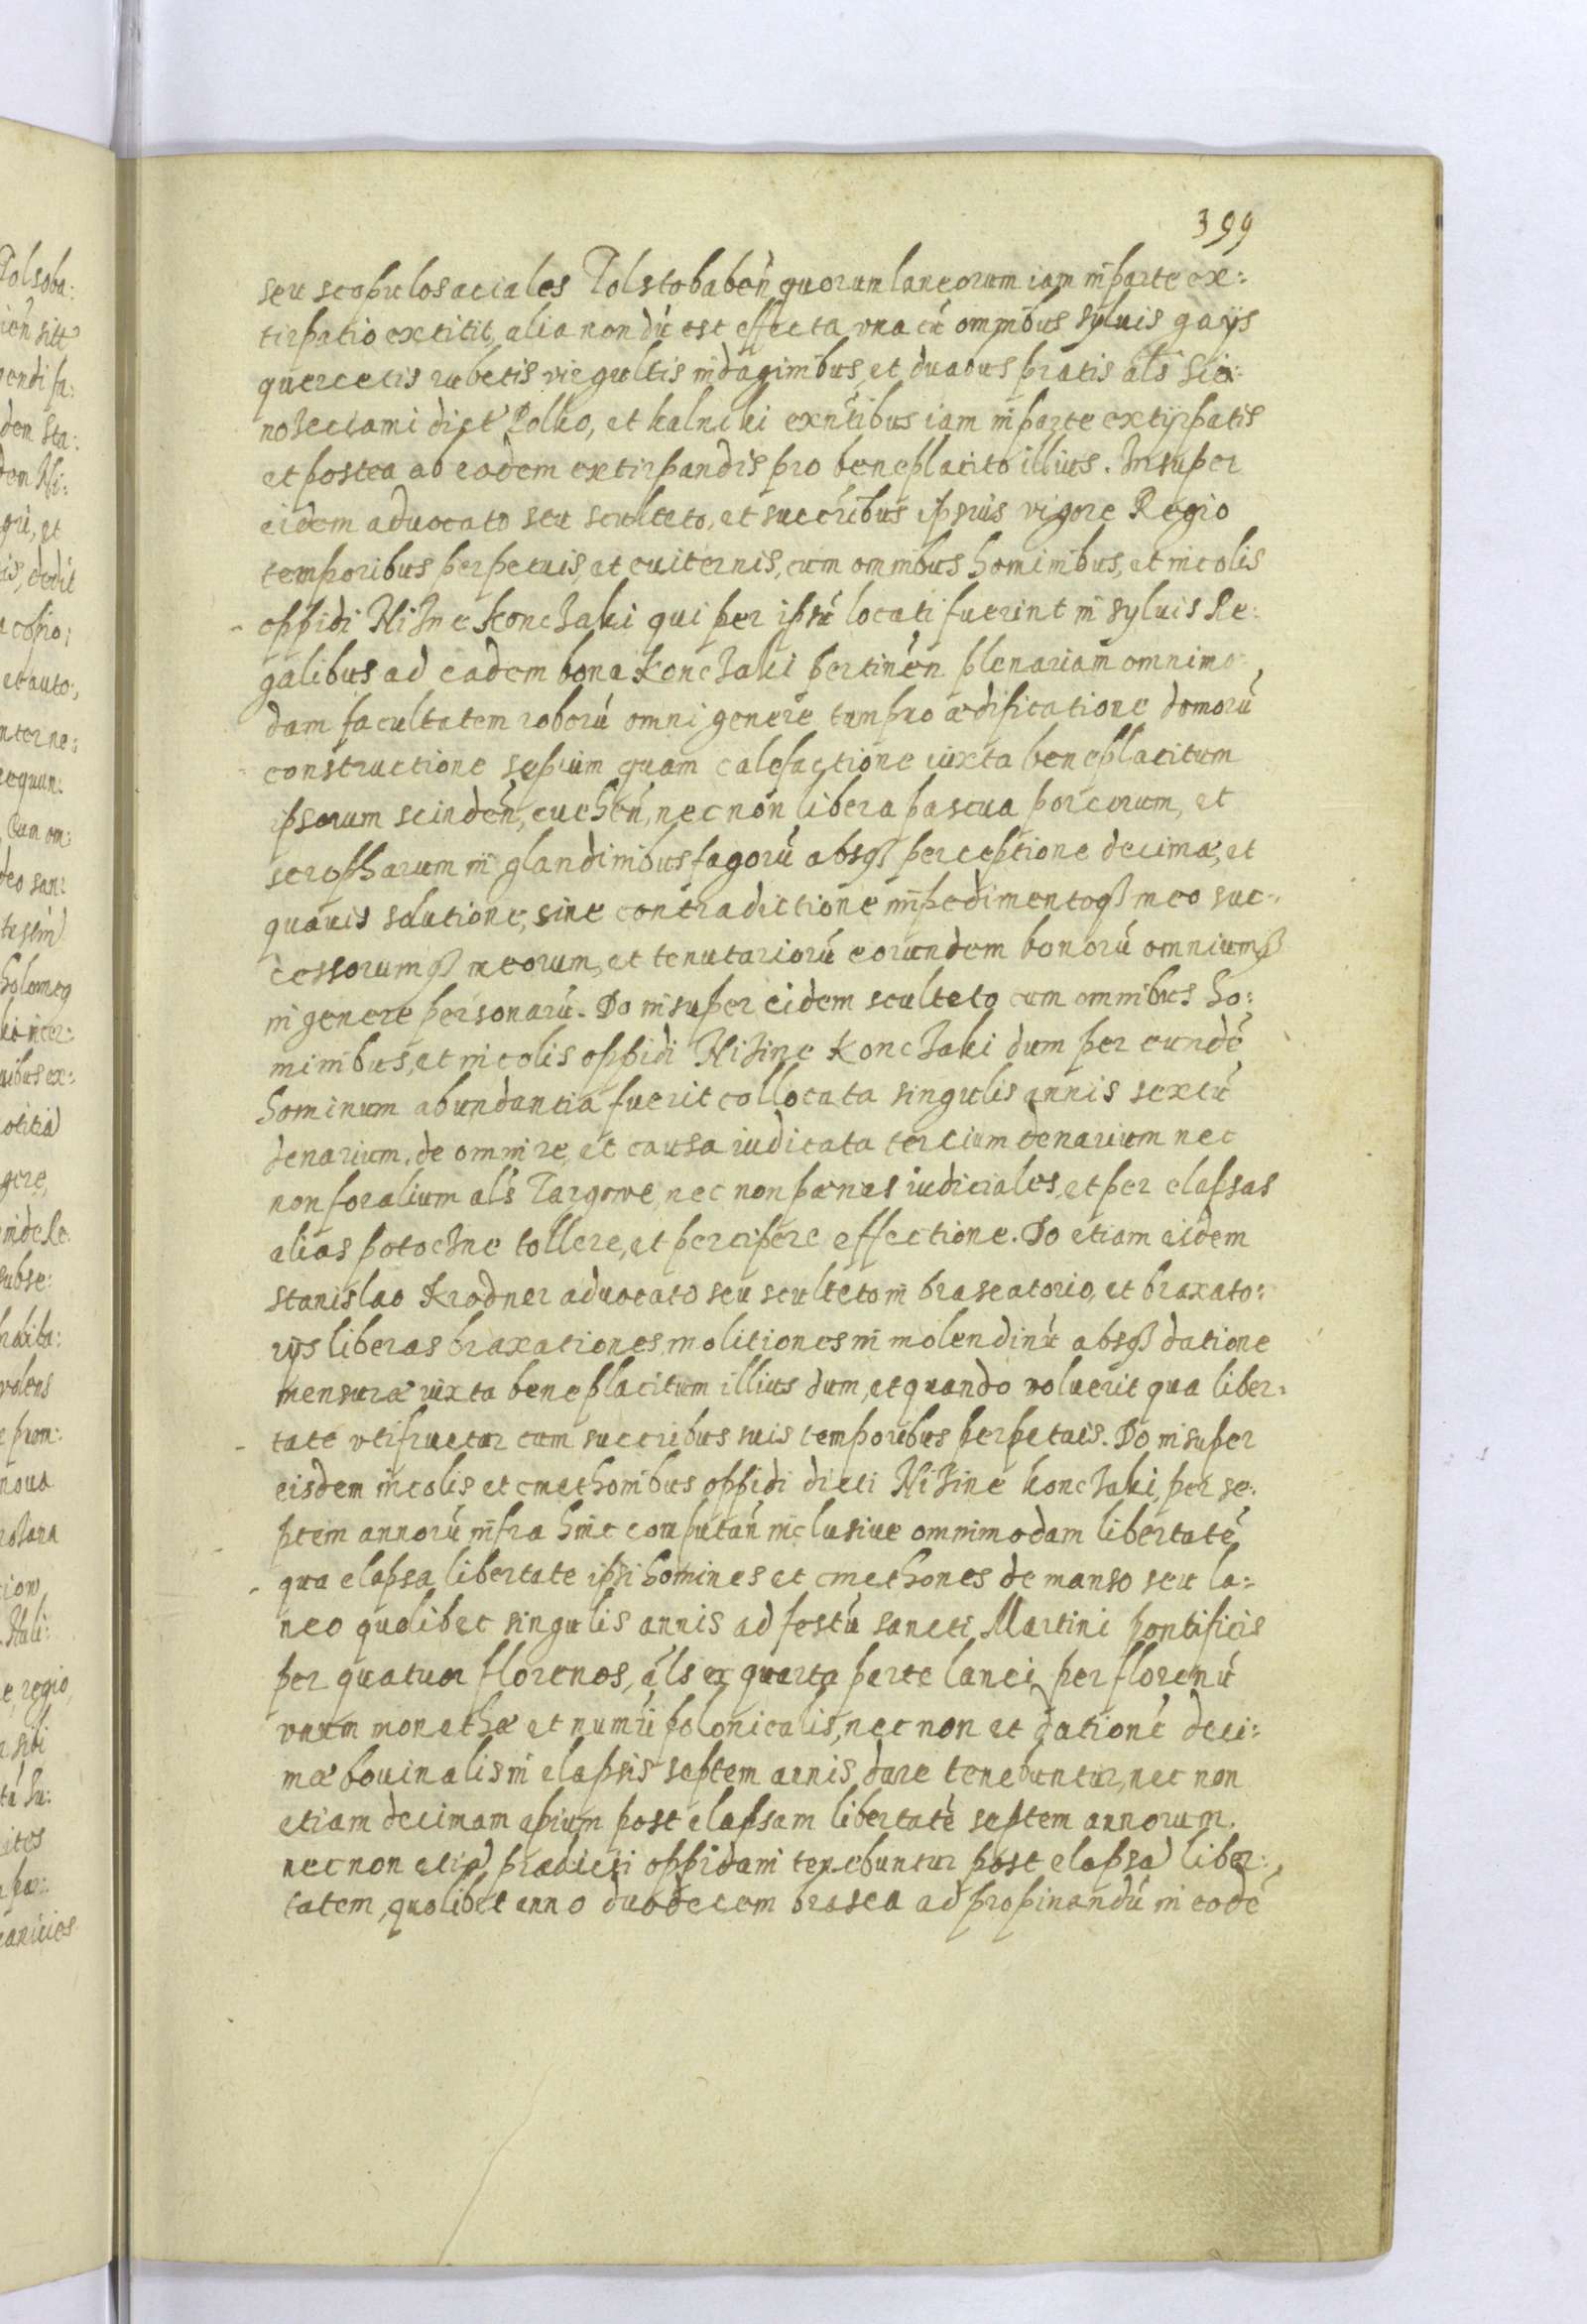 399
seu scopulos aciales Tolstobaben̄ quorum laneorum iam in parte ex:
tirpatio extitit, alia nondū est effecta vna cū omnibus syluis gaijs
quercetis rubetis virgultis indaginibus, et duabus pratis al̄s Sia:
nosecciami dict' Polko, et kalnchi exn̄tibus iam in parte extyrpatis
et postea ab eodem extirpandis pro beneplacito illius. Insuper
eidem aduocato seu sculteto, et succribus ipsius vigore Regio
temporibus perpetuis, et euiternis, cum omnibus hominibus, et incolis
oppidi Niżne Konczaki qui per ipsū locati fuerint in syluis Re:
galibus ad eadem bona Konczaki pertinen̄ plenariam omnimo:
dam facultatem roborū omni genere tam pro ædificatione domorū
constructione sepium quam calefactione iuxta beneplacitum
ipsorum scinden̄, euehen̄, nec non libera pascua porcorum, et
scropharum in glandinibus fagorū absq3 perceptione decimæ, et
quauis solutione, sine contradictione impedimentoq3 meo suc:
cessorumq3 meorum, et tenutariorū eorundem bonorū omniumq3
in genere personarū. Do insuper eidem sculteto cum omnibus ho:
minibus, et incolis oppidi Niżine Konczaki dum per eundē
hominum abundantia fuerit collocata singulis annis sextū
denarium, de omni re, et causa iudicata tercium denarium nec
non foralium al̄s Targowe, nec non pænas iudiciales, et per elapsas
alias potoczne tollere, et percipere effectione. Do etiam eidem
Stanislao Krodner aduocato seu sculteto in braseatorio, et braxato:
rijs liberas braxationes, molitiones in molendinū absq3 datione
mensuræ iuxta beneplacitum illius dum, et quando voluerit qua liber:
tate vtifruetur cum succribus suis temporibus perpetuis. Do insuper
eisdem incolis et cmethonibus oppidi dicti Niżine konczaki, per se:
ptem annorū infra hinc computan̄ inclusiue omnimodam libertatē
qua elapsa libertate ipsi homines et cmethones de manso seu la:
neo quolibet singulis annis ad festū sancti Martini pontificis
per quatuor florenos, al̄s ex quarta parte lanei per florenū
vnum monethæ et numī polonicalis, nec non et dationē deci:
mæ bouinalis in elapsis septem annis, dare tenebuntur, nec non
etiam decimam apium post elapsam libertatē septem annorum.
nec non etiā prædicti oppidani tenebuntur post elapsā liber:
tatem, quolibet anno duodecem brasea ad propinandū in eodē